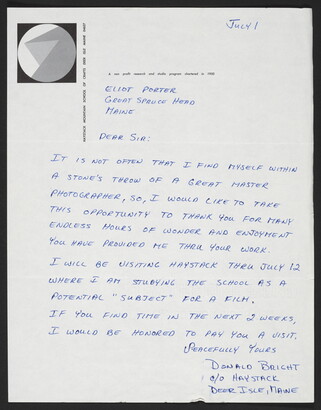 July 1
HAYSTACK MOUNTAIN SCHOOL OF CRAFTS DEER ISLE MAINE 04627
A non profit research and studio program chartered in 1950
ELIOT PORTER
GREAT SPRUCE HEAD
MAINE
DEAR SIR:
IT IS NOT OFTEN THAT I FIND MYSELF WITHIN
A STONE'S THROW OF A GREAT MASTER
PHOTOGRAPHER, SO, I WOULD LIKE TO TAKE
THIS OPPORTUNITY TO THANK YOU FOR MANY
ENDLESS HOURS OF WONDER AND ENJOYMENT
YOU HAVE PROVIDED ME THRU YOUR WORK.
I WILL BE VISITING HAYSTACK THRU JULY 12
WHERE I AM STUDYING THE SCHOOL AS A
POTENTIAL "SUBJECT" FOR A FILM.
IF YOU FIND TIME IN THE NEXT 2 WEEKS,
I WOULD BE HONORED TO PAY YOU A VISIT.
PEACEFULLY YOURS
DONALD BRIGHT
c/o HAYSTACK
DEER ISLE, MAINE